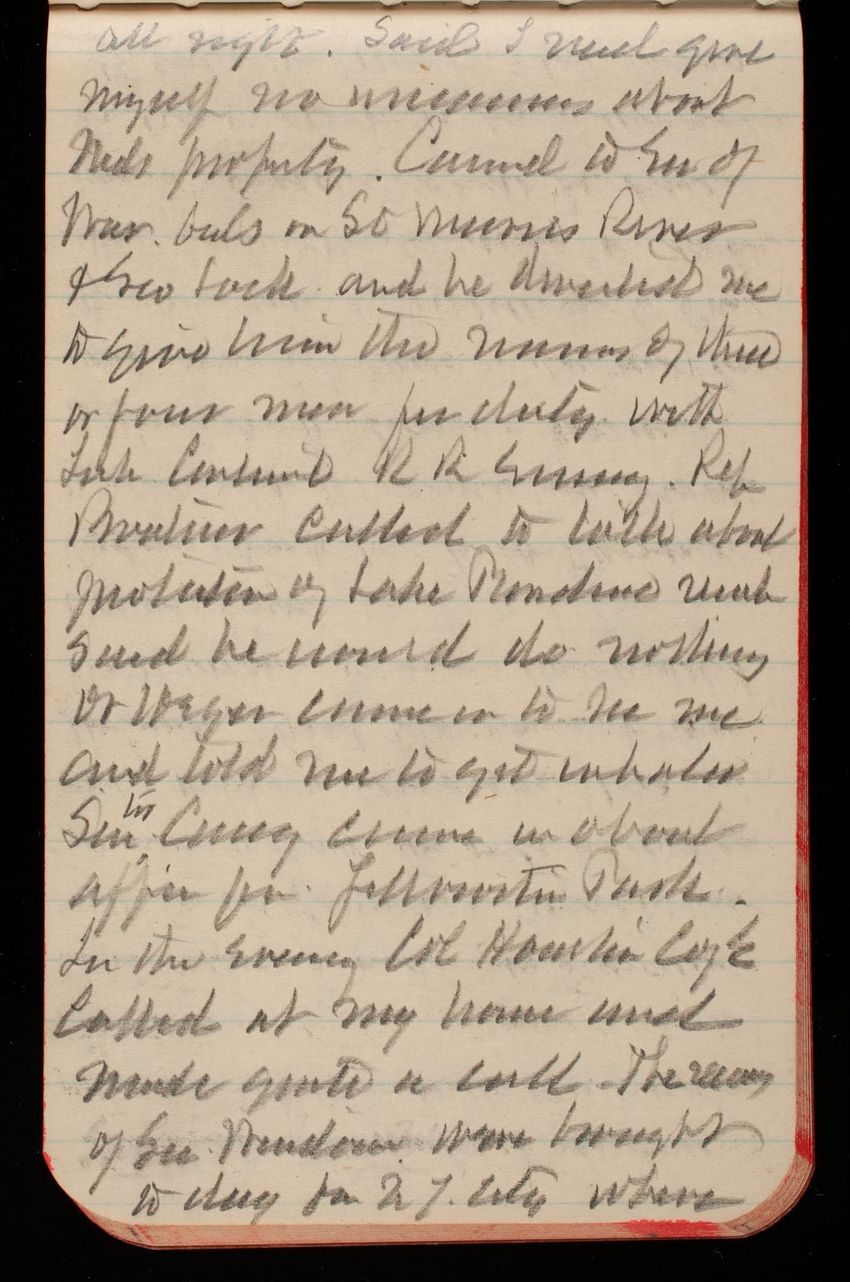 all right. Said I need give
myself no uneasiness about
Neds property. Carried to Sec of
War. bids on St Marys River
& Geo Lock and he directed me
to give him the names of three
or four men for duty with
R R Survey. Rep
called to talk about
protection of Lake work
Said he would do nothing
Dr came in to see me
and told me to get inhaler
Sen Casey came in about
affair for Yellowstone Park.
In the evening Col Houston Corps E
Called at my home and
made quite a call. The remains
of Sec Windom were brought
to day to city where